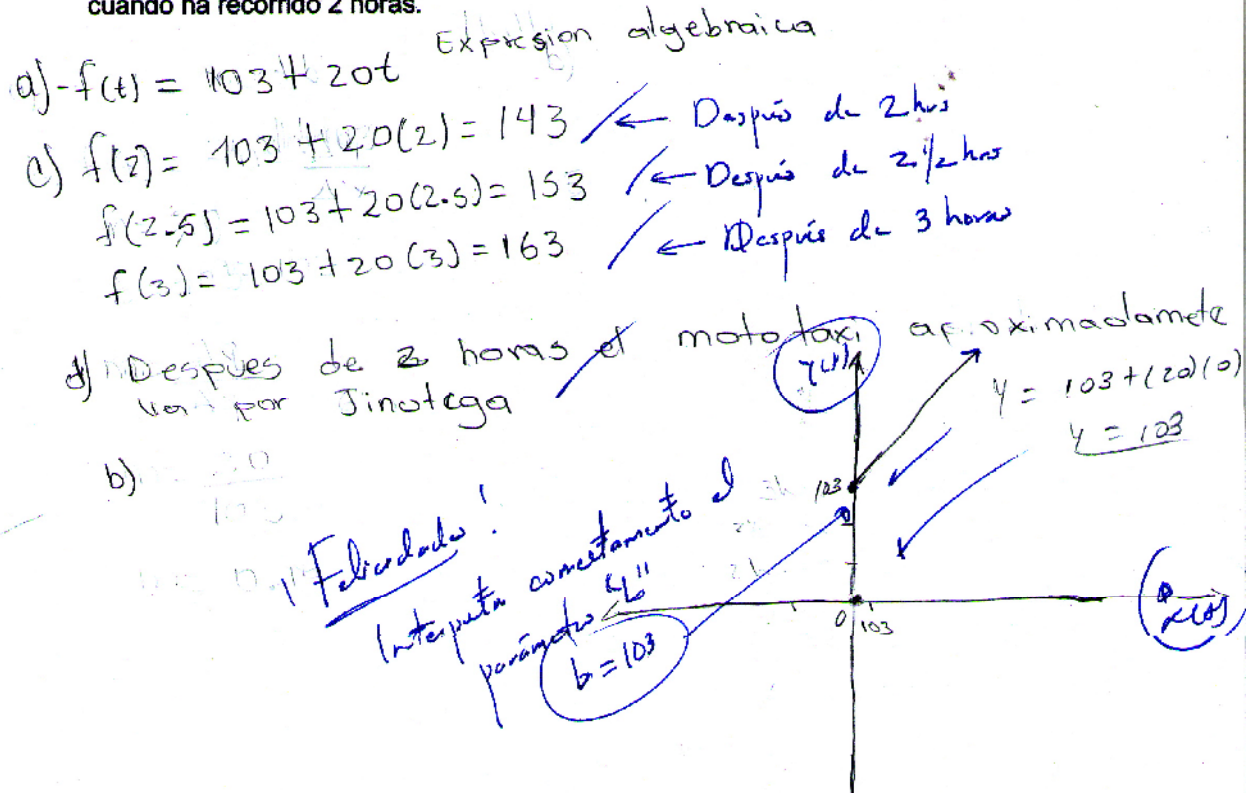 cuando ha recorrido 2 horas.
Expresion algebraica
a) - f(t) = 103 + 20t
c) f(2) = 103 + 20(2) = 143 ← Después de 2 hrs
f(2.5) = 103 + 20(2.5) = 153 ← Después de 2 1/2 hrs
f(3) = 103 + 20(3) = 163 ← Después de 3 horas
d) Despues de 2 horas el mototaxi aproximadamete
va por Jinotega
y = 103 + (20)(0)
y = 103
b)
103
¡Felicidades!
Interpreta correctamente el
parámetro "b"
b = 103
0 103